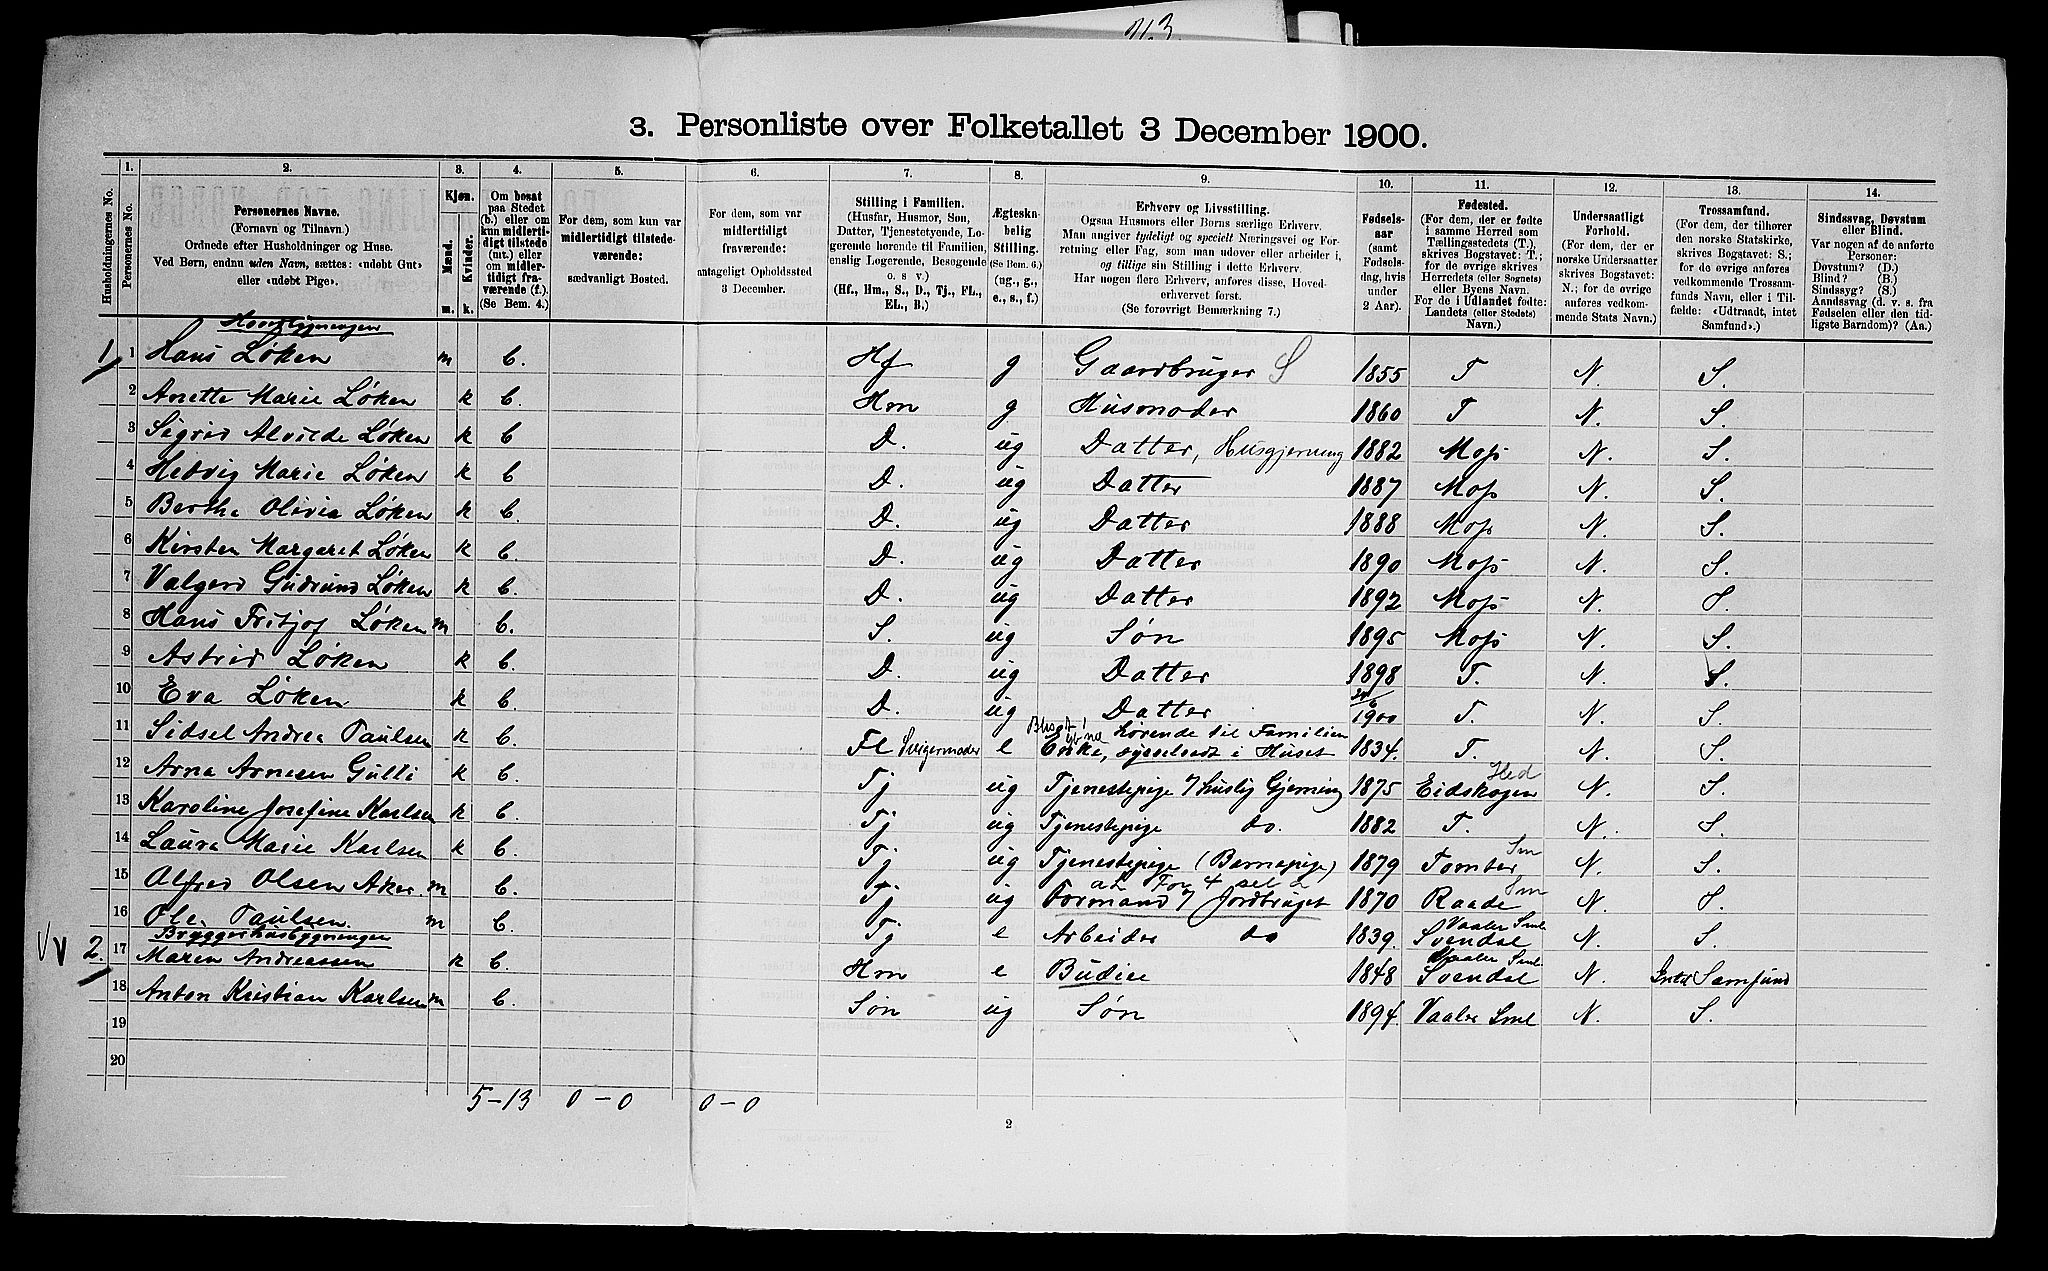 3. Personliste over Folketallet 3 December 1900.
1. 2. 3. 4. 5. 6. 7. 8. 9. 10. 11. 12. 13. 14.
Husholdningernes No.
Personernes No.
Personernes Navne.
(Fornavn og Tilnavn.)
Ordnede efter Husholdninger og Huse.
Ved Børn, endnu uden Navn, sættes: «udøbt Gut»
eller «udøbt Pige».
Kjøn.
Mænd.
Kvinder.
m. k.
Om bosat
paa Stedet
(b.) eller om
kun midlerti-
digt tilstede
(mt.) eller
om midler-
tidigt fra-
værende (f.).
(Se Bem. 4.)
For dem, som kun var
midlertidigt tilstede-
værende:
sædvanligt Bosted.
For dem, som var
midlertidigt
fraværende:
antageligt Opholdssted
3 December.
Stilling i Familien.
(Husfar, Husmor, Søn,
Datter, Tjenestetyende, Lo-
gerende hørende til Familien,
enslig Logerende, Besøgende
o. s. v.)
(Hf., Hm., S., D., Tj., FL.,
EL., B.)
Ægteska-
belig
Stilling.
(Se Bem. 6.)
(ug., g.,
e., s., f.)
Erhverv og Livsstilling.
Ogsaa Husmors eller Børns særlige Erhverv.
Man angiver tydeligt og specielt Næringsvei og For-
retning eller Fag, som man udøver eller arbeider i,
og tillige sin Stilling i dette Erhverv.
Har nogen flere Erhverv, anføres disse, Hoved-
erhvervet først.
(Se forøvrigt Bemærkning 7.)
Fødsels-
aar
(samt
Fødsels-
dag, hvis
under
2 Aar).
Fødested.
(For dem, der er fødte
i samme Herred som
Tællingsstedets (T.),
skrives Bogstavet: T.;
for de øvrige skrives
Herredets (eller Sognets)
eller Byens Navn.
For de i Udlandet fødte:
Landets (eller Stedets)
Navn.)
Undersaatligt
Forhold.
(For dem, der er
norske Undersaatter
skrives Bogstavet:
N.; for de øvrige
anføres vedkom-
mende Stats Navn.)
Trossamfund.
(For dem, der tilhører
den norske Statskirke,
skrives Bogstavet: S.;
for de øvrige anføres
vedkommende Trossam-
funds Navn, eller i Til-
fælde: «Udtraadt, intet
Samfund».)
Sindssvag, Døvstum
eller Blind.
Var nogen af de anførte
Personer:
Døvstum? (D.)
Blind? (B.)
Sindssyg? (S.)
Aandssvag (d. v. s. fra
Fødselen eller den tid-
ligste Barndom)? (Aa.)
Hovedbygningen
1 1 Hans Løken m b. Hf g Gaardbruger S 1855 T N. S.
2 Anette Marie Løken k b. Hm g Husmoder 1860 T N. S.
3 Sigrid Alvilde Løken k b D. ug Datter, Husgjerning 1882 Moss N. S.
4 Hedvig Marie Løken k b D. ug Datter 1887 Moss N. S.
5 Berthe Olivia Løken k b. D. ug Datter 1888 Moss N. S.
6 Kirsten Margaret Løken k b. D. ug Datter 1890 Moss N. S.
7 Valgerd Gudrund Løken k b. D. ug Datter 1892 Moss N. S.
8 Hans Fritjof Løken m b. S. ug Søn 1895 Moss N. S.
9 Astrid Løken k b. D. ug Datter 1898 T. N. S.
10 Eva Løken k b. D. ug Datter 1900 T. N. S.
11 Sidsel Andrea Paulsen k b. Fl Svigermoder e Enke, hørende til Familien sysselsadt i Huset 1834. T. N. S.
12 Arna Arnesen Gulli k b. Tj ug Tjenestepige / huslig Gjerning 1875 Eidskogen Hed N. S.
13 Karoline Josefine Karlsen k b. Tj ug Tjenestepige do. 1882 T. N. S.
14 Laura Marie Karlsen k b. Tj ug Tjenestepige (Barnepige) 1879 Tomber Sm N. S.
15 Alfred Olsen Aker m b. Tj. ug Formand / Jordbruget 1870 Raade Sm N. S.
16 Ole Paulsen m b. Tj e Arbeider do 1839. Svendal Vaaler Sml. N. S.
Bryggerhusbygningen
2. 17 Maren Andreassen k b. Hm e Budeie 1848 Svendal Vaaler Sml. N. Intet Samfund
18 Anton Kristian Karlsen m b. Søn ug Søn 1894. Vaaler Sml N. S.
19
20
5-13 0-0 0-0
2